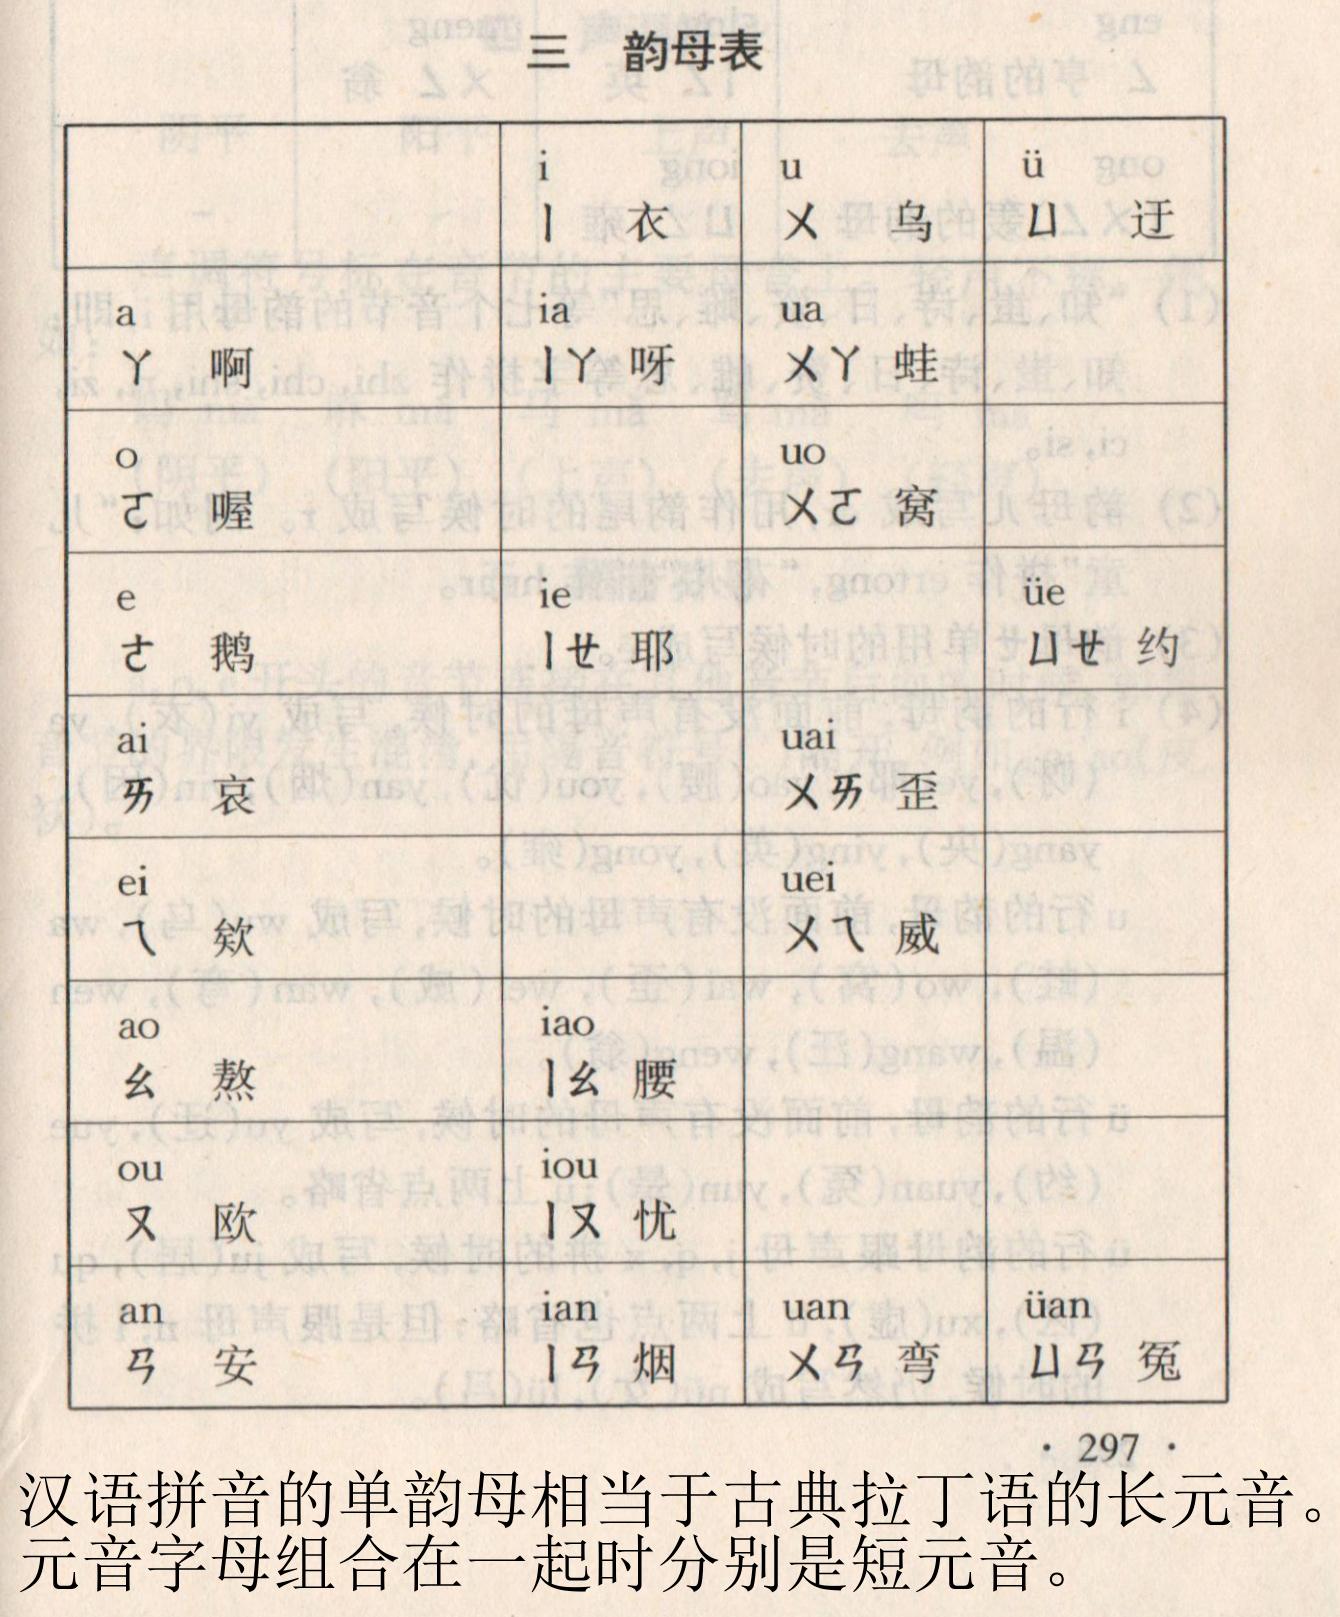 三 韵母表
i u ü
ㄧ 衣 ㄨ 乌 ㄩ 迂
a ia ua
ㄚ 啊 ㄧㄚ 呀 ㄨㄚ 蛙
o uo
ㄛ 喔 ㄨㄛ 窝
e ie üe
ㄜ 鹅 ㄧㄝ 耶 ㄩㄝ 约
ai uai
ㄞ 哀 ㄨㄞ 歪
ei uei
ㄟ 欸 ㄨㄟ 威
ao iao
ㄠ 熬 ㄧㄠ 腰
ou iou
ㄡ 欧 ㄧㄡ 忧
an ian uan üan
ㄢ 安 ㄧㄢ 烟 ㄨㄢ 弯 ㄩㄢ 冤
· 297 ·
汉语拼音的单韵母相当于古典拉丁语的长元音。
元音字母组合在一起时分别是短元音。